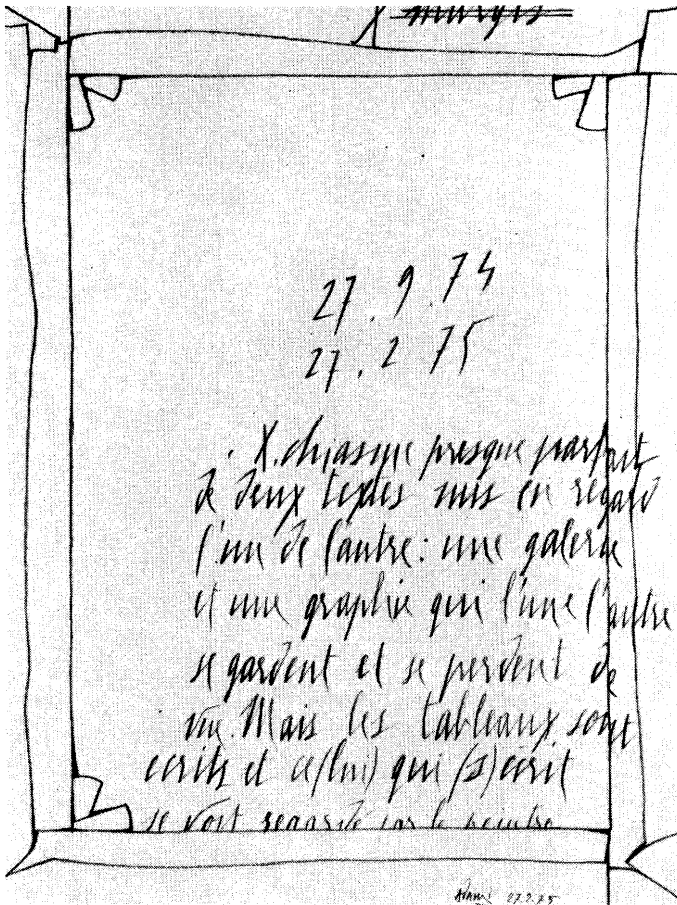 marges
27.9.74
27.2.75
. X. chiasme presque parfait
de deux textes mis en regard
l'un de l'autre : une galerie
et une graphie qui l'une l'autre
se gardent et se perdent de
vue. Mais les tableaux sont
écrits et ce(lui) qui (s)écrit
se voit regardé par le peintre
Adami 27.2.75